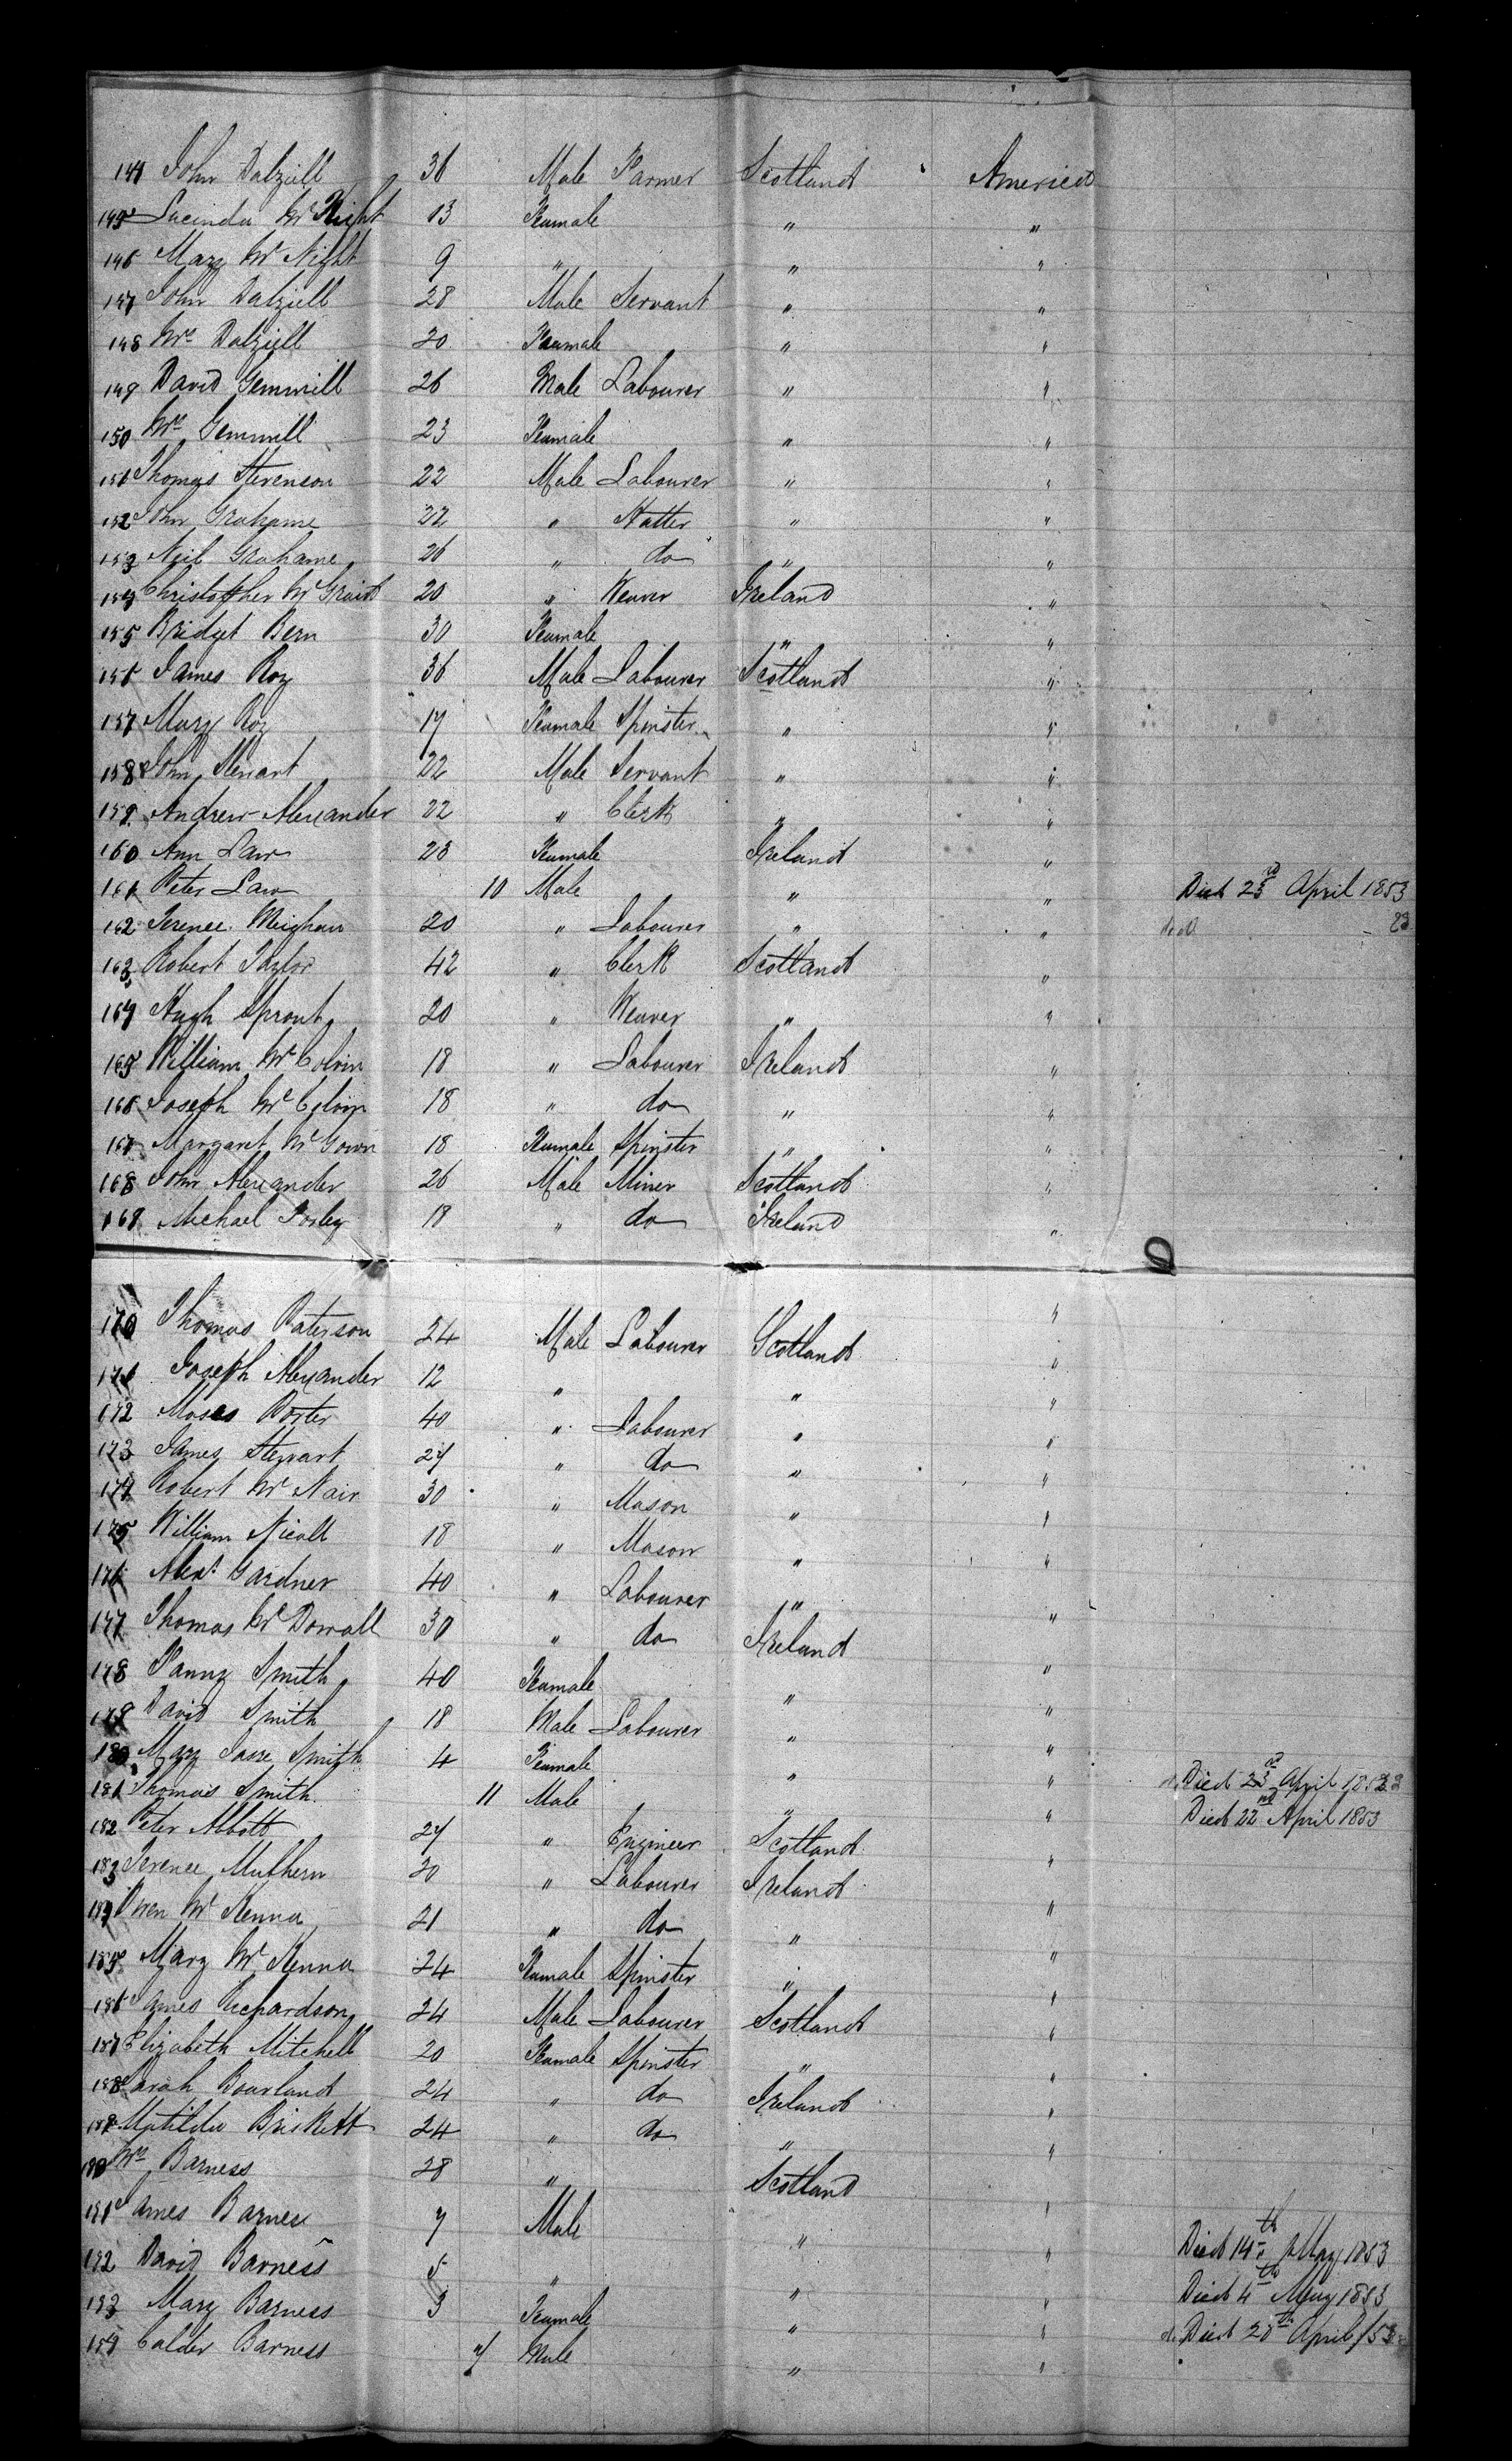 144 John Dalziell 36 Male Farmer Scotland America
145 Lucinda McKnight 13 Feamale " "
146 Mary McNight 9 " " "
147 John Dalziell 28 Male Servant " "
148 Mrs Dalziell 20 Feamale " "
149 David Gemmill 26 Male Labourer " "
150 Mrs Gemmill 23 Feamale " "
151 Thomas Stevenson 22 Male Labourer " "
152 John Grahame 22 " Hatter " "
153 Neil Grahame 26 " do " "
154 Christopher 20 " Weaver Ireland "
155 Bridget Bern 30 Feamale " "
156 James Roy 36 Male Labourer Scotland "
157 Mary Roy 17 Feamale Spinster " "
158 John Stewart 22 Male Servant " "
159 Andrew Alexander 22 " Clerk " "
160 Ann Law 23 Feamale Ireland "
161 Peter Law 10 Male " " Died 23rd April 1853
162 Terence Meighan 20 " Labourer " "
163 Robert Taylor 42 " Clerk Scotland "
164 Hugh Sprout 20 " Weaver " "
165 William McColvin 18 " Labourer Ireland "
166 Joseph McColvin 18 " do " "
167 Margaret McGown 18 Feamale Spinster " "
168 John Alexander 26 Male Miner Scotland "
169 Michael 18 " do Ireland "
170 Thomas Paterson 24 Male Labourer Scotland "
171 Joseph Alexander 12 " " "
172 Moses Porter 40 " Labourer " "
173 James Stewart 27 " do " "
174 Robert McNair 30 " Mason " "
175 William Nicoll 18 " Mason " "
176 Alexr Gardner 40 " Labourer " "
177 Thomas McDowall 30 " do Ireland "
178 Fanny Smith 40 Feamale " "
179 David Smith 18 Male Labourer " "
180 Mary Jane Smith 4 Feamale " " Died 23rd April 1853
181 Thomas Smith 11 Male " " Died 22nd April 1853
182 Peter Abbott 27 " Engineer Scotland "
183 Terence Mulhern 20 " Labourer Ireland "
184 Owen McKenna 21 " do " "
185 Mary McKenna 24 Feamale Spinster " "
186 James Richardson 24 Male Labourer Scotland "
187 Elizabeth Mitchell 20 Feamale Spinster " "
188 Sarah Bourland 24 " do Ireland "
189 Matilda Briskett 24 " do " "
190 Mrs Barness 28 " Scotland
191 James Barness 7 Male " " Died 14th May 1853
192 David Barness 5 " " " Died 4th May 1853
193 Mary Barness 3 Feamale " " Died 28th April /53
194 Calder Barness 7 Male " "